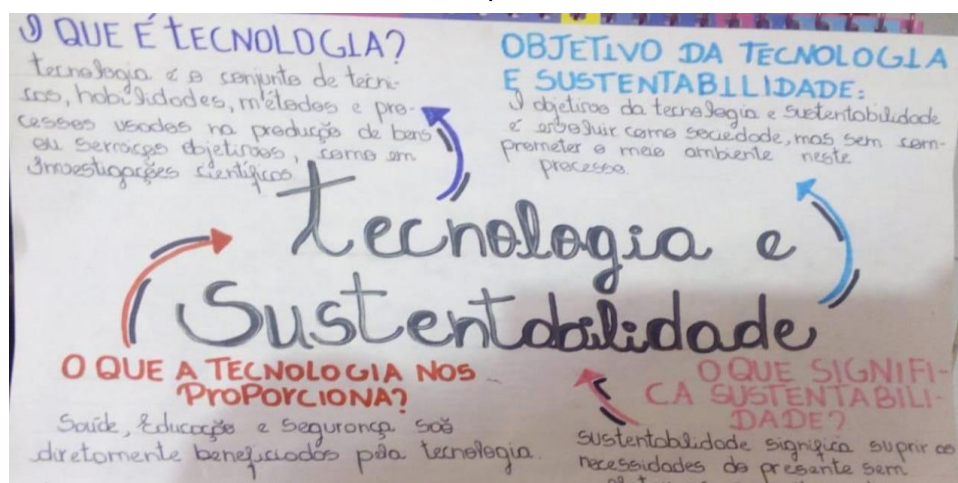 O QUE É TECNOLOGIA?
tecnologia é o conjunto de técni-
cas, habilidades, métodos e pro-
cessos usados na produção de bens
ou serviços objetivos, como em
Investigações científicas.
OBJETIVO DA TECNOLOGIA
E SUSTENTABILIDADE:
O objetivo da tecnologia e sustentabilidade
é evoluir como sociedade, mas sem com-
prometer o meio ambiente neste
processo.
Tecnologia e
Sustentabilidade
O QUE A TECNOLOGIA NOS
PROPORCIONA?
Saúde, Educação e Segurança são
diretamente beneficiados pela tecnologia.
O QUE SIGNIFI-
CA SUSTENTABILI-
DADE?
sustentabilidade significa suprir as
necessidades do presente sem